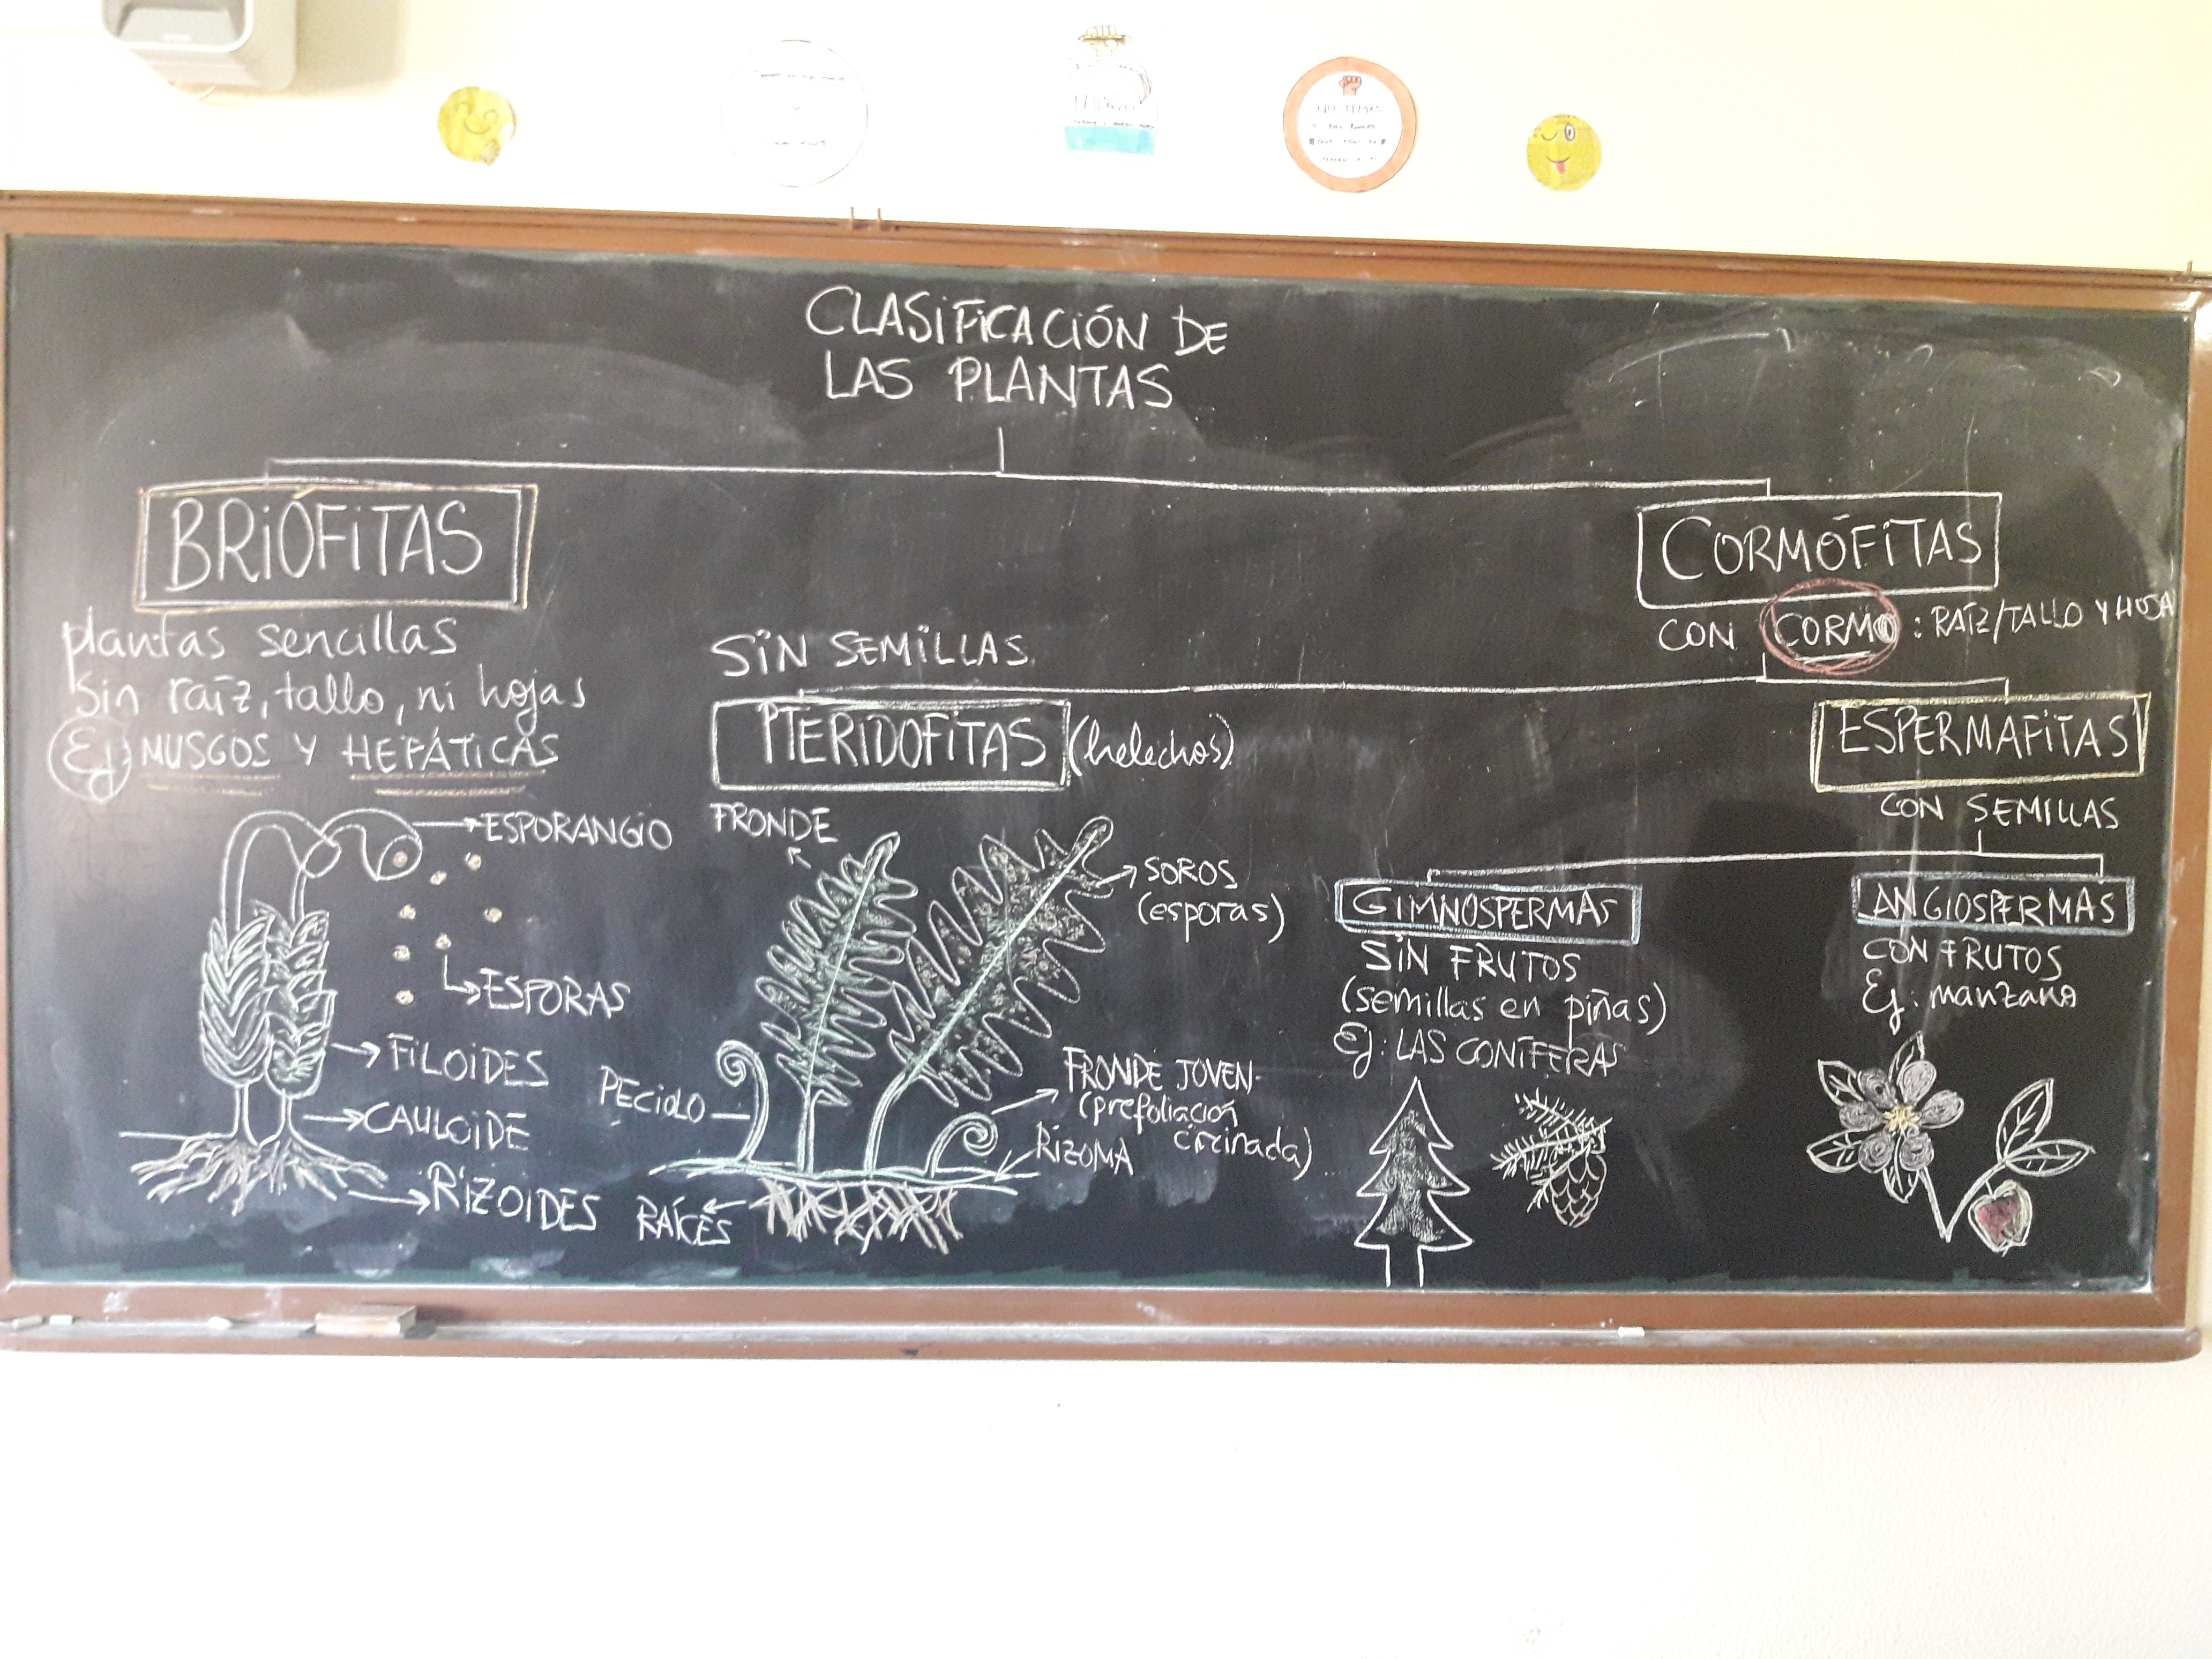 NO TEMAS
CLASIFICACIÓN DE
LAS PLANTAS
BRIÓFITAS
plantas sencillas
Sin raíz, tallo, ni hojas
Ej: MUSGOS Y HEPÁTICAS
ESPORANGIO
ESPORAS
FILOIDES
CAULOIDE
RIZOIDES
CORMÓFITAS
CON CORMO: RAÍZ/TALLO Y HOJA
SIN SEMILLAS
PTERIDOFITAS (helechos)
FRONDE
SOROS
(esporas)
PECIOLO
FRONDE JOVEN
(prefoliación
circinada)
RIZOMA
RAÍCES
ESPERMAFITAS
CON SEMILLAS
GIMNOSPERMAS
SIN FRUTOS
(semillas en piñas)
Ej: LAS CONÍFERAS
ANGIOSPERMAS
CON FRUTOS
Ej: manzano